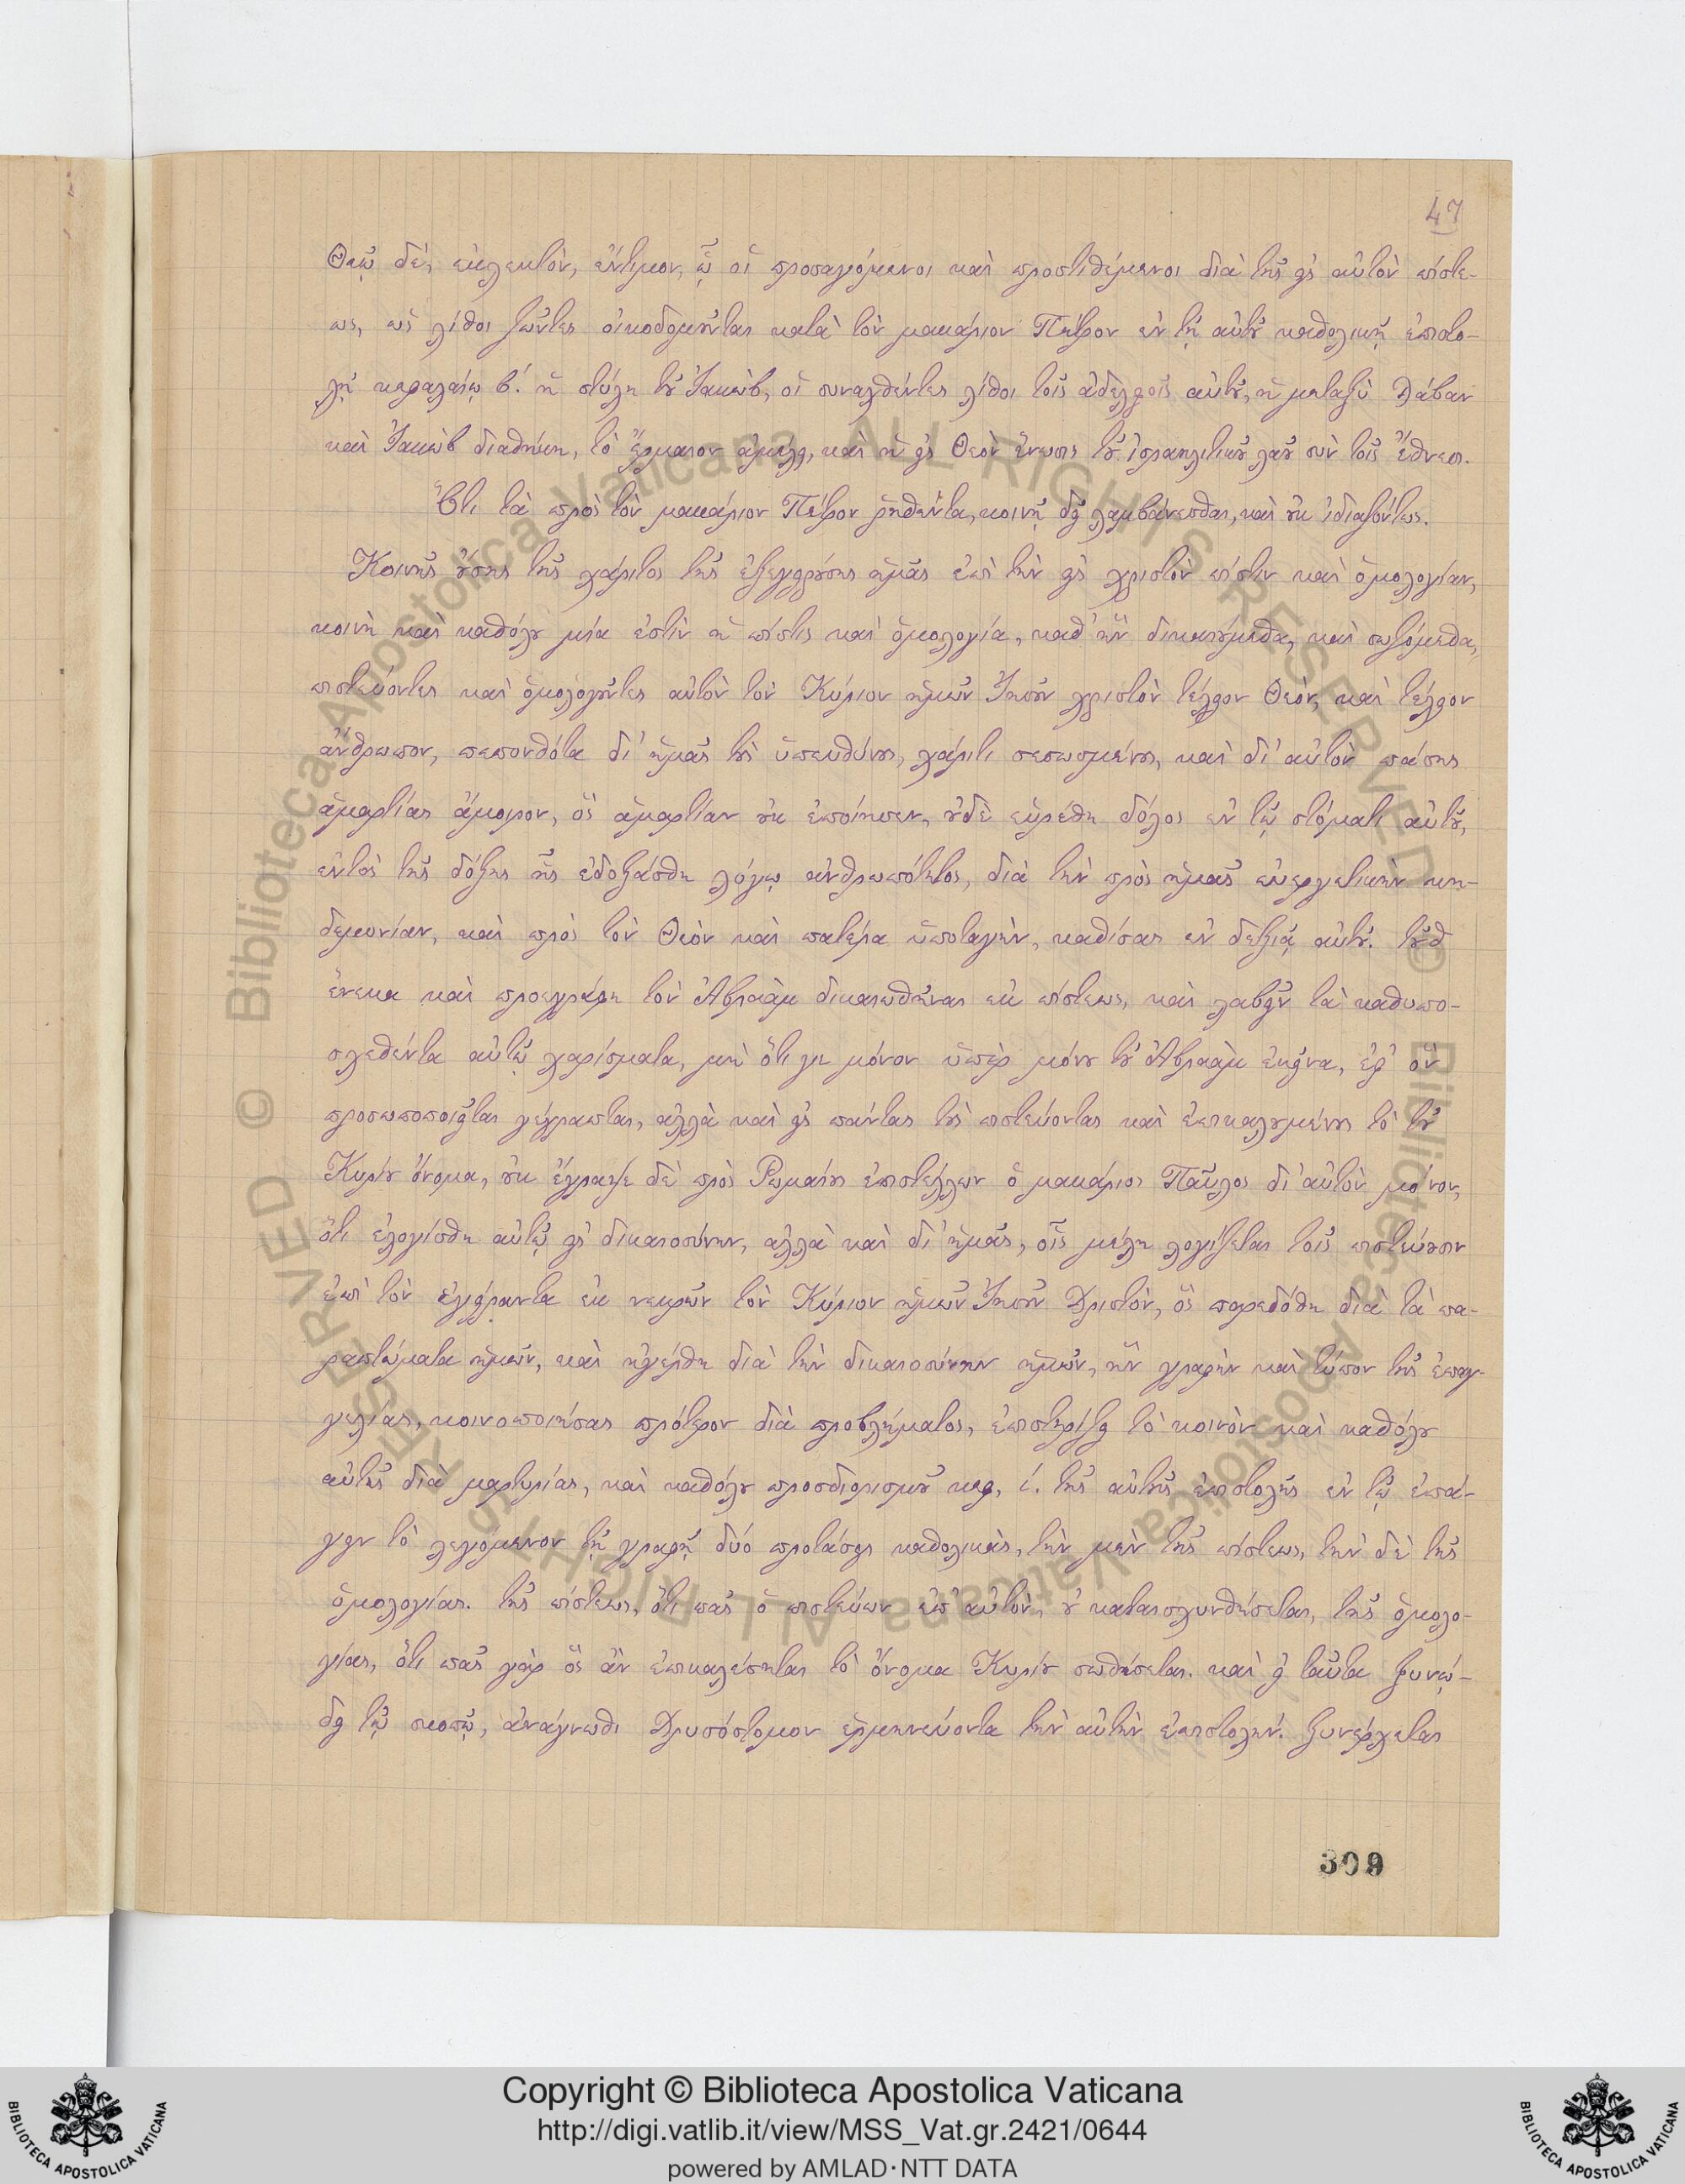 47
Θεῷ δὲ, ἐκλεκτὸν, ἔντιμον, ᾧ οἱ προσαγόμενοι καὶ προστιθέμενοι διὰ τῆς εἰς αὐτὸν πίστε-
ως, ὡς λίθοι ζῶντες οἰκοδομοῦνται κατὰ τὸν μακάριον Πέτρον ἐν τῇ αὐτοῦ καθολικῇ ἐπιστο-
λῇ κεφαλαίῳ β΄. ἡ στήλη τοῦ Ἰακὼβ, οἱ συναχθέντες λίθοι τοῖς ἀδελφοῖς αὐτοῦ, ἡ μεταξὺ Λάβαν
καὶ Ἰακὼβ διαθήκη, τὸ ἕρμαιον ἀμέλει, καὶ ἡ εἰς Θεὸν ἕνωσις τοῦ ἰσραηλιτικοῦ λαοῦ σὺν τοῖς ἔθνεσι.
Ὅτι τὰ πρὸς τὸν μακάριον Πέτρον ῥηθέντα, κοινῇ δεῖ λαμβάνεσθαι, καὶ οὐκ ἰδιαζόντως.
Κοινῆς οὔσης τῆς χάριτος τῆς ἐξεγειρούσης ἡμᾶς ἐπὶ τὴν εἰς χριστὸν πίστιν καὶ ὁμολογίαν,
κοινὴ καὶ καθόλου μία ἐστὶν ἡ πίστις καὶ ὁμολογία, καθ᾽ ἣν δικαιούμεθα, καὶ σωζόμεθα,
πιστεύοντες καὶ ὁμολογοῦντες αὐτὸν τὸν Κύριον ἡμῶν Ἰησοῦν χριστὸν τέλειον Θεὸν, καὶ τέλειον
ἄνθρωπον, πεπονθότα δι᾽ ἡμᾶς τοὺς ὑπευθύνους, χάριτι σεσωσμένους, καὶ δι᾽ αὐτὸν πάσης
ἁμαρτίας ἄμοιρον, ὃς ἁμαρτίαν οὐκ ἐποίησεν, οὐδὲ εὑρέθη δόλος ἐν τῷ στόματι αὐτοῦ,
ἐντὸς τῆς δόξης ἧς ἐδοξάσθη λόγῳ ἀνθρωπότητος, διὰ τὴν πρὸς ἡμᾶς εὐεργετικὴν κη-
δεμονίαν, καὶ πρὸς τὸν Θεὸν καὶ πατέρα ὑποταγὴν, καθίσας ἐν δεξιᾷ αὐτοῦ. τοῦδ
ἕνεκα καὶ προεγράφη τὸν Ἀβραὰμ δικαιωθῆναι ἐκ πίστεως, καὶ λαβεῖν τὰ καθυπο-
σχεθέντα αὐτῷ χαρίσματα, μὴ ὅτι γε μόνον ὑπὲρ μόνου τοῦ Ἀβραὰμ ἐκεῖνα, ἐφ᾽ ὃν
προσωποποιεῖται γέγραπται, ἀλλὰ καὶ εἰς πάντας τοὺς πιστεύοντας καὶ ἐπικαλουμένους τὸ τοῦ
Κυρίου ὄνομα, οὐκ ἔγραψε δὲ πρὸς Ρωμαίους ἐπιστέλλων ὁ μακάριος Παῦλος δι᾽ αὐτὸν μόνον,
ὅτι ἐλογίσθη αὐτῷ εἰς δικαιοσύνην, ἀλλὰ καὶ δι᾽ ἡμᾶς, οἷς μέλη λογίζεται τοῖς πιστεύουσιν
ἐπὶ τὸν ἐγείραντα ἐκ νεκρῶν τὸν Κύριον ἡμῶν Ἰησοῦν Χριστὸν, ὃς παρεδόθη διὰ τὰ πα-
ραπτώματα ἡμῶν, καὶ ἠγέρθη διὰ τὴν δικαιοσύνην ἡμῶν, ἣν γραφὴν καὶ τύπον τῆς ἐπαγ-
γελίας, κοινοποιήσας πρότερον διὰ προβλήματος, ἐπιστηρίζει τὸ κοινὸν καὶ καθόλου
αὐτῆς διὰ μαρτυρίας, καὶ καθόλου προσδιορισμοῦ κεφ, ί. τῆς αὐτῆς ἐπιστολῆς ἐν τῷ ἐπά-
γειν τὸ λεγόμενον τῇ γραφῇ δύο προτάσεις καθολικὰς, τὴν μὲν τῆς πίστεως, τὴν δὲ τῆς
ὁμολογίας. τῆς πίστεως, ὅτι πᾶς ὁ πιστεύων ἐπ᾽ αὐτὸν, οὐ καταισχυνθήσεται, τῆς ὁμολο-
γίας, ὅτι πᾶς γὰρ ὃς ἂν ἐπικαλέσηται τὸ ὄνομα Κυρίου σωθήσεται. καὶ εἰ ταῦτα ξυνᾴ-
δει τῷ σκοπῷ, ἀνάγνωθι Χρυσόστομον ἑρμηνεύοντα τὴν αὐτὴν ἐπιστολήν. ξυνέρχεται
309
© Biblioteca Apostolica Vaticana ALL RIGHTS RESERVED
© Biblioteca Apostolica Vaticana ALL RIGHTS RESERVED
Copyright © Biblioteca Apostolica Vaticana
http://digi.vatlib.it/view/MSS_Vat.gr.2421/0644
powered by AMLAD·NTT DATA
BIBLIOTECA APOSTOLICA VATICANA
BIBLIOTECA APOSTOLICA VATICANA